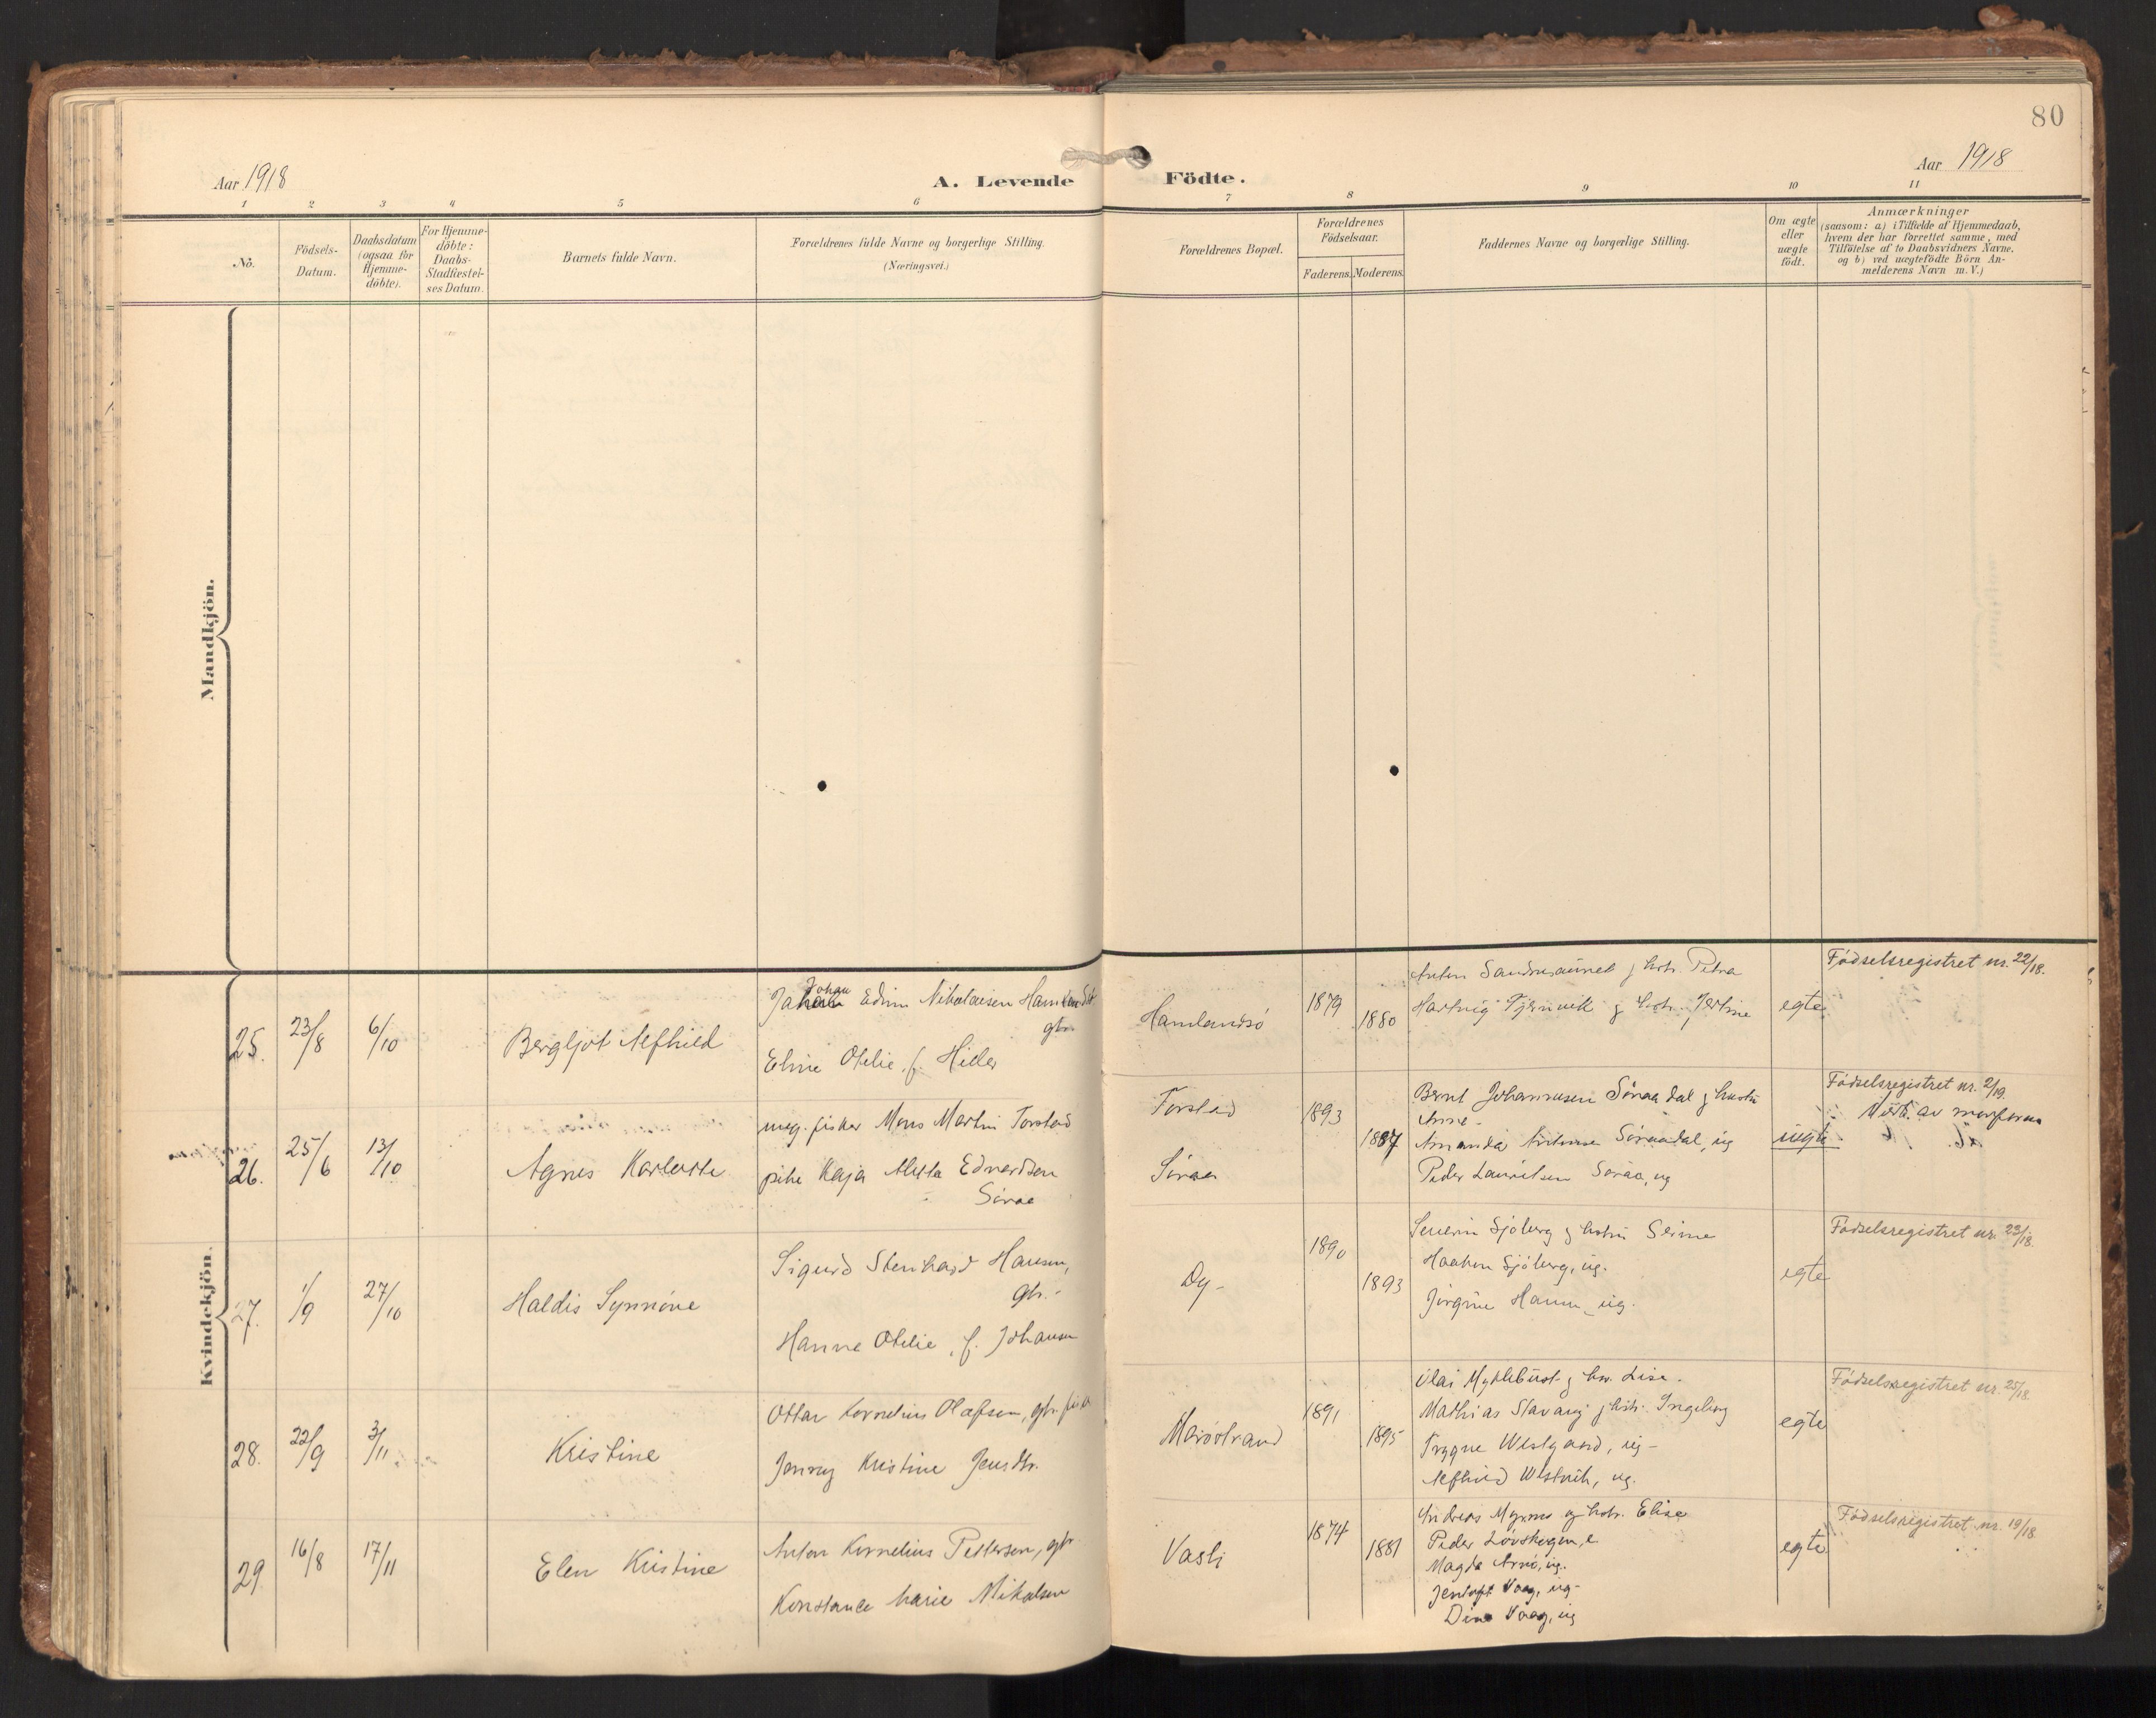 80
Aar 1918
A. Levende Födte.
Aar 1918
1 2 3 4 5 6 7 8 9 10 11
No.
Födsels-
Datum.
Daabsdatum
(ogsaa for
Hjemme-
döbte).
For Hjemme-
döbte:
Daabs-
Stadfæstel-
ses Datum.
Barnets fulde Navn.
Forældrenes fulde Navne og borgerlige Stilling.
(Næringsvei.)
Forældrenes Bopæl.
Forældrenes
Födselsaar.
Faderens. Moderens.
Faddernes Navne og borgerlige Stilling.
Om ægte
eller
uægte
födt.
Anmærkninger
(saasom: a) i Tilfælde af Hjemmedaab,
hvem der har forrettet samme, med
Tilföielse af to Daabsvidners Navne.
og b) ved uægtefödte Börn An-
melderens Navn m.V.)
Mandkjön.
Kvindekjön.
25. 23/8 6/10
Bergljot Alfhild
Johan
Edvin Nikolaisen
gbr.
Eline Otelie, f. Hiller
Hamlandsö
1879
1880
Anton Sandmaunet g hstr. Petra
Hartvig g hstr.
egte
Födselsregistret nr. 22/18.
26. 25/6 13/10
Agnes Karlotte
ung. fisker Mons Martin Torstad
pike Kaja Aletta Edvardsen
Söraa
Torstad
Söraa
1893
1887
Bernt Johannesen Söraadal g hustru
Anne
Amanda Söraadal, ug
Peder Lauritsen Söraa, ug
uegte
Födselsregistret nr. 2/19.
av morforen
27. 1/9 27/10
Haldis Synnöve
Sigurd Stenhard Hansen,
gbr.
Hanna Otelie, f. Johansen
Dy
1890
1893
Severin Sjöberg g hstru Serine
Haakon Sjöberg, ug.
Jörgine Hansen, ug.
egte
Födselsregistret nr. 23/18.
28. 22/9 3/11
Kristine
Ottar Kornelius Olafsen, gbr. fisker
Jenny Kristine Jensdtr.
Maröstrand
1891
1895
Olai Myklebust g hu. Lise.
Mathias Slavang g hstr. Ingeborg
Trygve Westgaard, ug
Alfhild Westvik, ug.
egte
Födselsregistret nr. 25/18
29. 16/8 17/11
Elen Kristine
Anton Kornelius Pettersen, gbr.
Konstance Marie Mikalsen
Vasli
1874
1881
Andreas Myrmo og hstr. Elise
Peder Lövskogen, e.
Magda Arnö, ug.
Jentoft Vaag, ug
Dina Vaag, ug
egte
Födselsregistret nr. 19/18